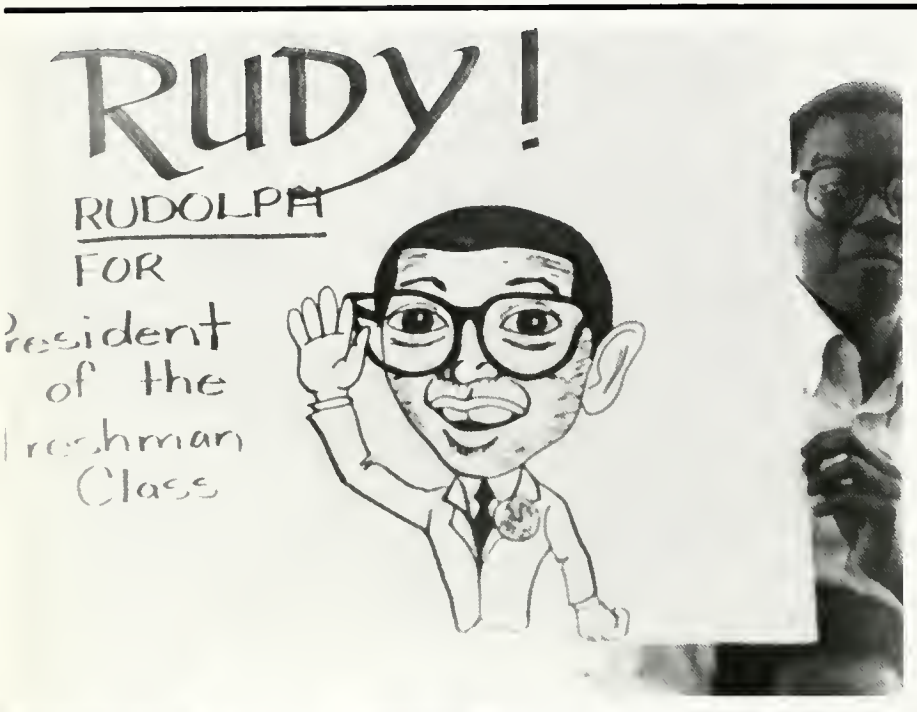 RUDY!
RUDOLPH
FOR
President
of the
Freshman
Class